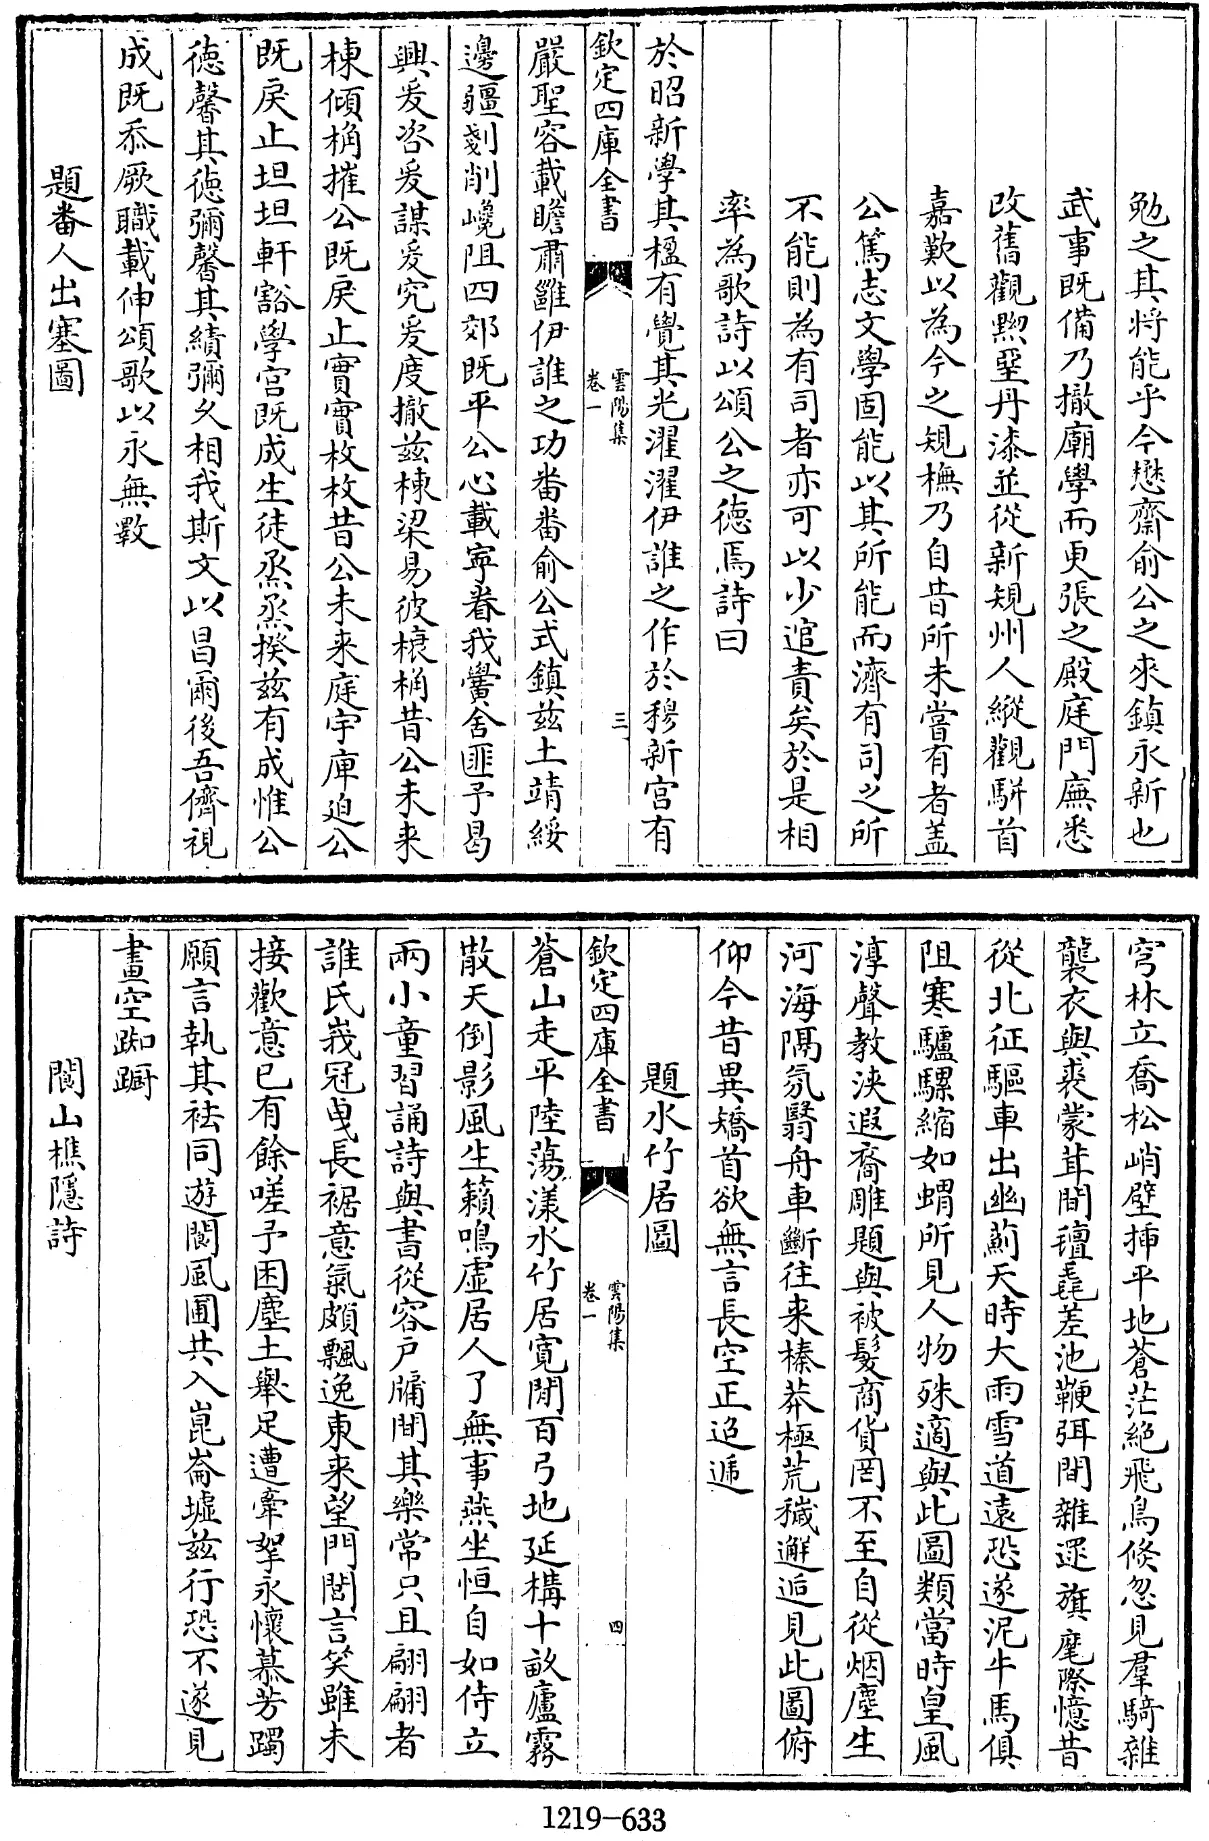 勉之其將能乎今懋齋俞公之來鎮永新也
武事既備乃撤廟學而更張之殿庭門廡悉
改舊觀黝堊丹漆並從新規州人縱觀駢首
嘉歎以為今之規橅乃自昔所未嘗有者盖
公篤志文學固能以其所能而濟有司之所
不能則為有司者亦可以少逭責矣於是相
率為歌詩以頌公之徳焉詩曰
於昭新學其楹有覺其光濯濯伊誰之作於穆新宮有
欽定四庫全書
雲陽集
卷一
三
嚴聖容載瞻肅雝伊誰之功番番俞公式鎮兹土靖綏
邊疆剗削巉阻四郊既平公心載寧眷我黌舍匪予曷
興爰咨爰謀爰究爰度撤兹棟梁易彼榱桷昔公未来
棟傾桷摧公既戾止實實枚枚昔公未来庭宇庫迫公
既戾止坦坦軒豁學宫既成生徒烝烝揆兹有成惟公
徳馨其徳彌馨其績彌久相我斯文以昌爾後吾儕視
成既忝厥職載伸頌歌以永無斁
題番人出塞圖
穹林立喬松峭壁揷平地蒼茫絶飛鳥倐忽見羣騎雜
襲衣與裘蒙茸間氊毳差池鞭弭間雜遝旗麾際憶昔
從北征驅車出幽薊天時大雨雪道遠恐遂泥牛馬俱
阻寒驢騾縮如蝟所見人物殊適與此圖類當時皇風
淳聲教浹遐裔雕題與被髪商貨罔不至自從烟塵生
河海隔氛翳舟車斷往来榛莽極荒穢邂逅見此圖俯
仰今昔異矯首欲無言長空正迢遞
題水竹居圖
欽定四庫全書
雲陽集
卷一
四
蒼山走平陸蕩漾水竹居寛閒百弓地延構十畝廬霧
散天倒影風生籟鳴虚居人了無事燕坐恒自如侍立
兩小童習誦詩與書從容戸牖間其樂常只且翩翩者
誰氏峩冠曵長裾意氣頗飄逸東来望門閭言笑雖未
接歡意已有餘嗟予困塵土舉足遭牽挐永懷慕芳躅
願言執其袪同遊閬風圃共入崑崙墟兹行恐不遂見
畫空踟蹰
閬山樵隱詩
1219-633